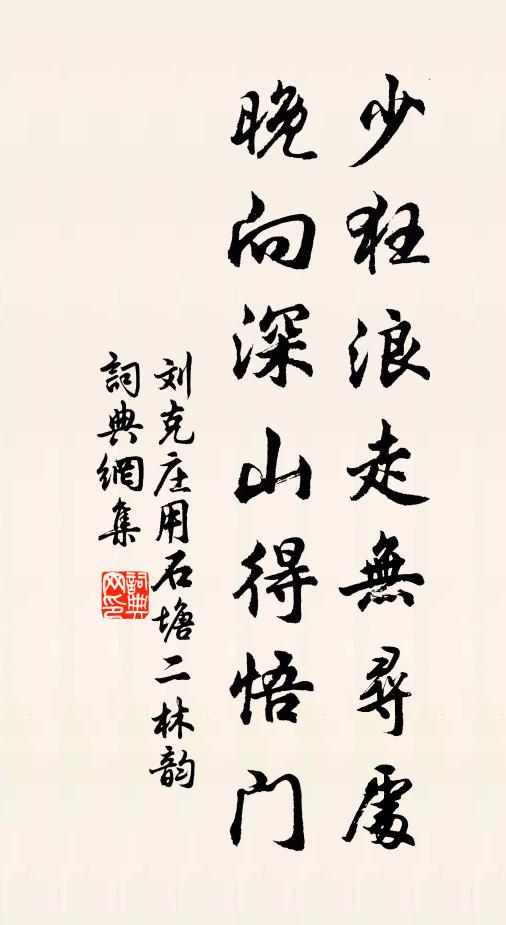 少狂浪走無尋處
晚向深山得悟门
刘克庄用石塘二林韵
詞典網集
詞典网印